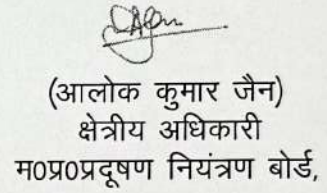 (आलोक कुमार जैन)
क्षेत्रीय अधिकारी
म0प्र0प्रदूषण नियंत्रण बोर्ड,